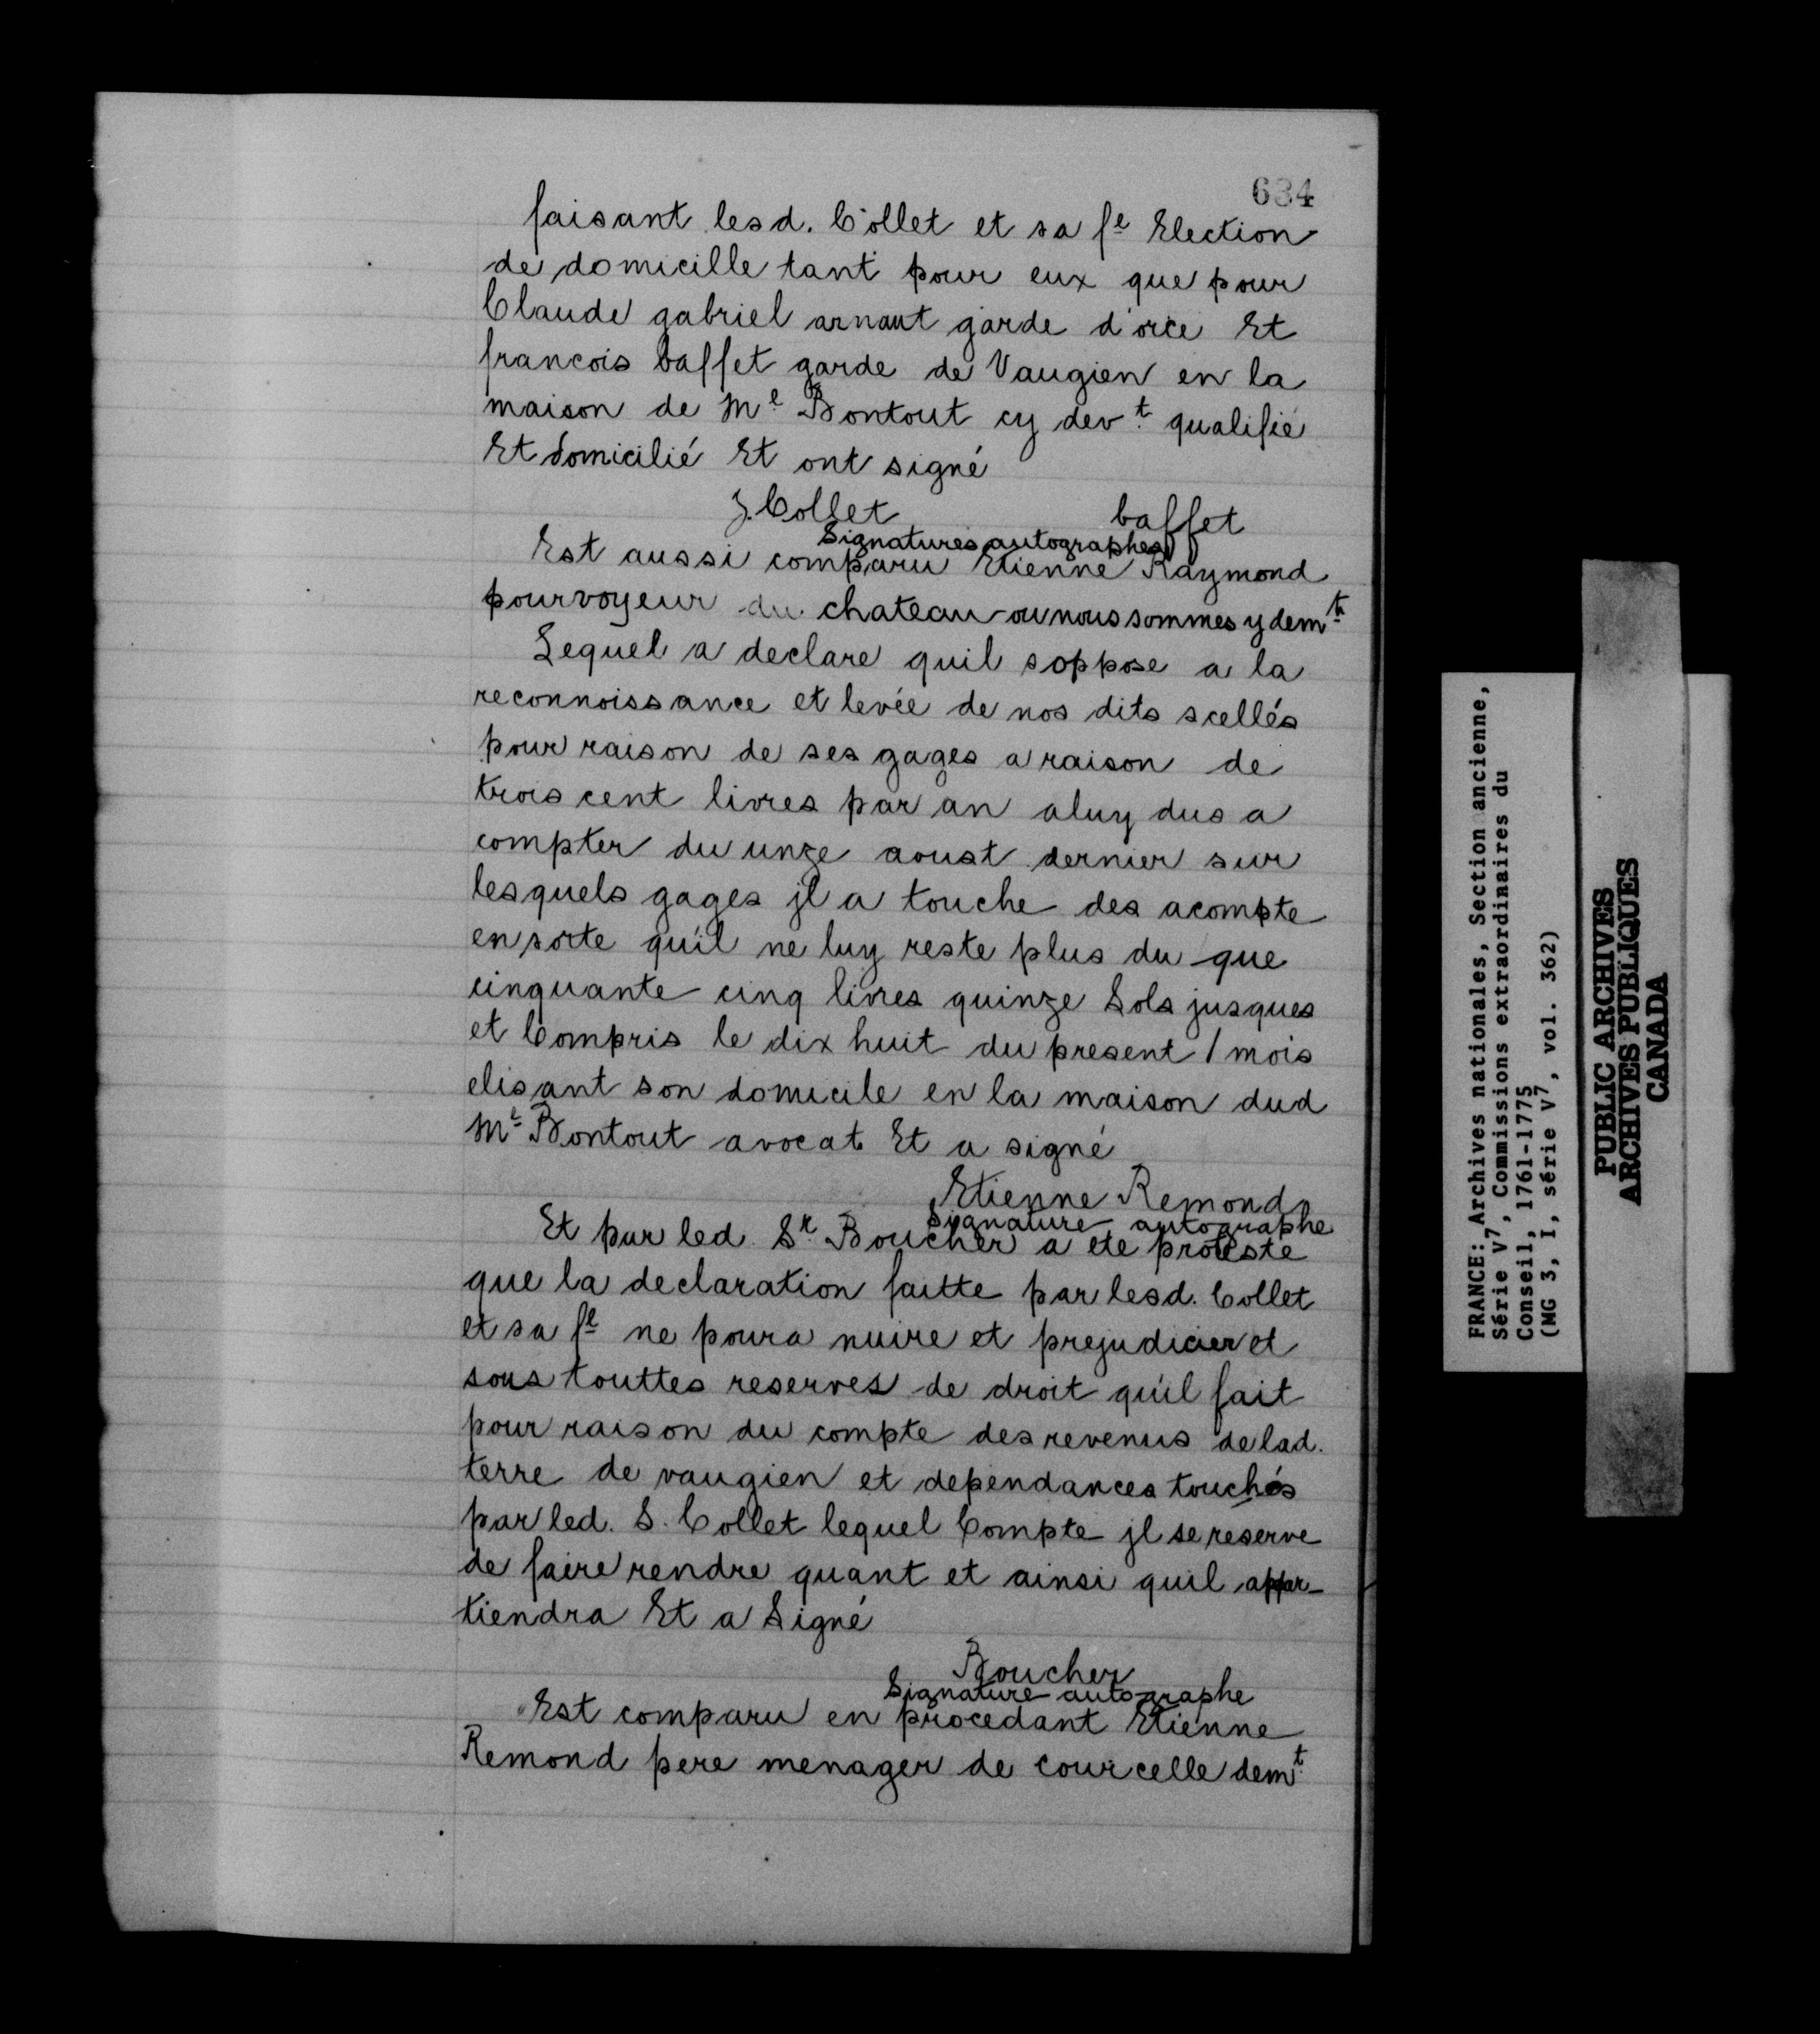 634
faisant lesd. Collet et sa fe Election
de domicille tant pour eux que pour
Claude gabriel arnaut garde d'orce Et
francois baffet garde de Vaugien en la
maison de Me Bontout cy devt qualifié
Et domicilié Et ont signé
J. Collet baffet
Signatures autographes
Est aussi comparu Etienne Raymond
pourvoyeur du chateau ou nous sommes y demt
Lequel a declare quil soppose a la
reconnoissance et levée de nos dits scellés
pour raison de ses gages a raison de
trois cent livres par an aluy dus a
compter du unze aoust dernier sur
lesquels gages jl a touche des acompte
en sorte qu'il ne luy reste plus du que
cinquante cinq livres quinze Sols jusques
et Compris le dix huit du present / mois
elisant son domicile en la maison dud
Me Bontout avocat Et a signé
Etienne Remond
Signature autographe
Et par led. Sr Boucher a ete proteste
que la declaration faitte par lesd. Collet
et sa fe ne poura nuire et prejudicier et
sous touttes reserves de droit qu'il fait
pour raison du compte des revenus de lad.
terre de vaugien et dependances touchés
par led. S. Collet lequel Compte jl se reserve
de faire rendre quant et ainsi quil appar-
tiendra Et a Signé
Boucher
Signature autographe
Est comparu en procedant Etienne
Remond pere menager de courcelle demt
FRANCE: Archives nationales, Section ancienne,
Série V7, Commissions extraordinaires du
Conseil, 1761-1775
(MG 3, I, série V7, vol. 362)
PUBLIC ARCHIVES
ARCHIVES PUBLIQUES
CANADA